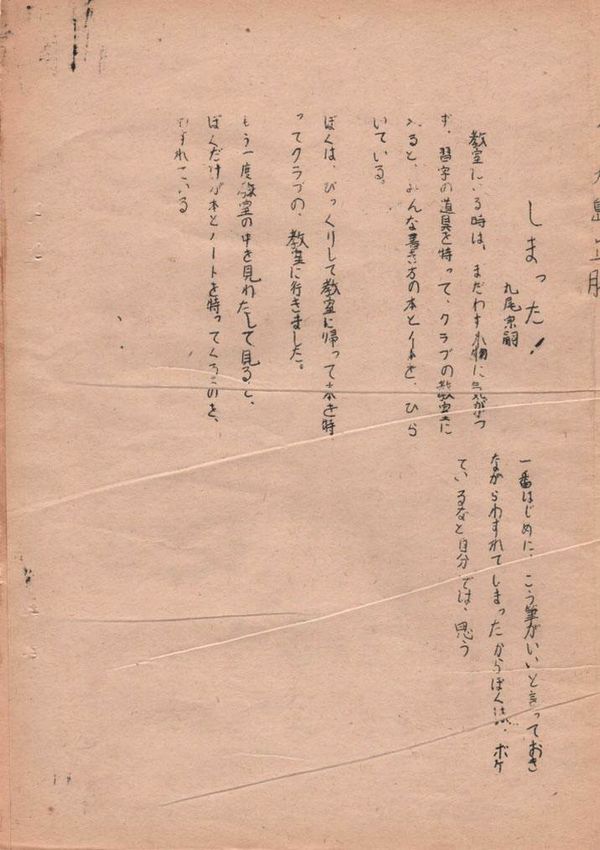 しまった！
丸尾宗嗣
教室にいる時は、まだわすれ物に気がつ
ず、習字の道具を持って、クラブの教室に
入ると、みんな書き方の本とノートを、ひら
いている。
ぼくは、びっくりして教室に帰って本を持
ってクラブの、教室に行きました。
もう一度教室の中を見わたして見ると、
ぼくだけが本とノートを持ってくるのを、
わすれている
一番はじめに、こう筆がいいと言っておき
ながらわすれてしまったからぼくは、ボケ
ているなと自分では、思う